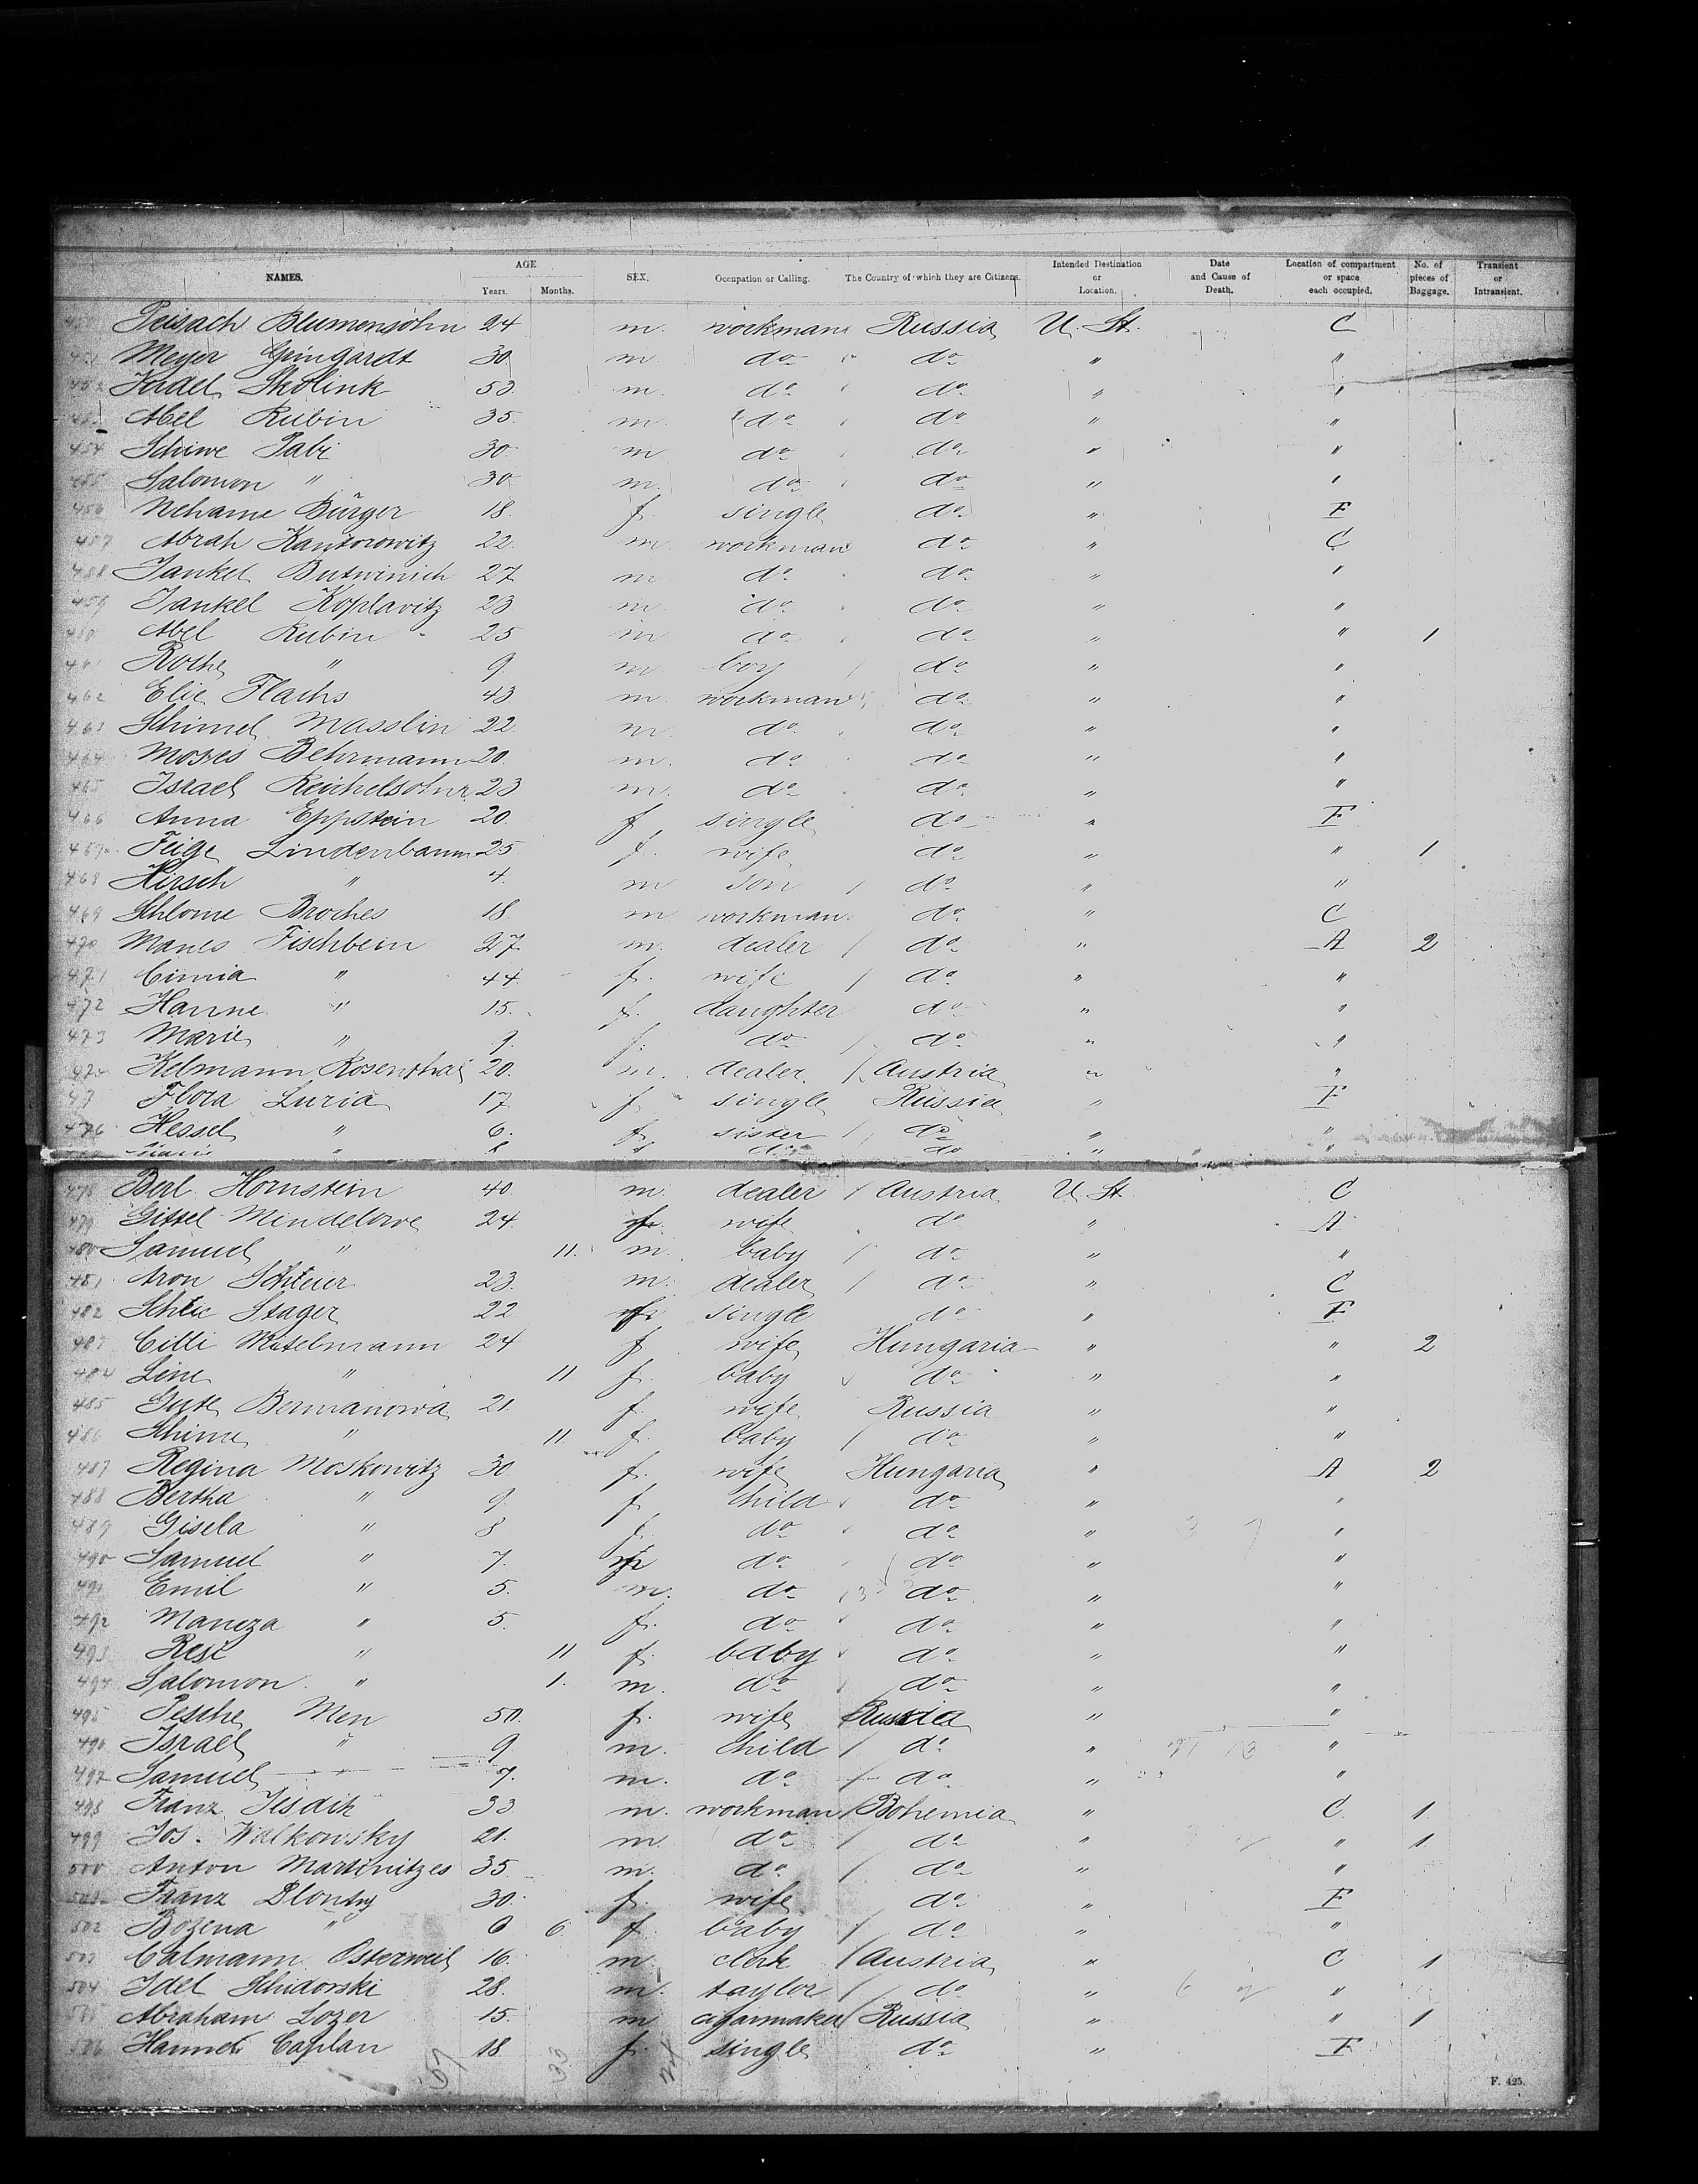 NAMES. AGE Years. Months. SEX. Occupation or Calling. The Country of which they are Citizens. Intended Destination or Location. Date and Cause of Death. Location of compartment or space each occupied. No. of pieces of Baggage. Transient or Intransient.
Peisach Blumensohn 24 m. workman Russia U. St. C
Meyer Geingardt 30 m do do " "
Judel Skolink 53 m. do do " "
453 Abel Rubin 35. m do do " "
454 Schiwe Pabi 30 m do do " "
455 Salomon " 30 m. do do " "
456 Nehame Bürger 18. f. single do " F
457 Abrah Kantorowitz 22. m workman do " C
458 Jankel Butwinich 27 m do do " "
459 Jankel Koplavitz 23 m do do " "
460 Abel Rubin 25 m do do " " 1
461 Roche " 9. m boy do " "
462 Elie Flachs 43 m workman do " "
463 Schimel Masslin 22. m. do do " "
464 Moses Behrmann 20. m. do do " "
465 Israel Reichelsohn 23 m. do do " "
466 Anna Eppstein 20. f. single do " F
467 Feige Lindenbaum 25. f. wife do " " 1
468 Hirsch " 4. m son do " "
469 Schlome Broches 18. m workman do " C
470 Manes Fischbein 27 m. dealer do " A 2
471 Cimia " 44. f. wife do " "
472 Hanne " 15. f. daughter do " "
473 Marie " 9. f. do do " "
474 Kelmann Rosenthal 20. m. dealer Austria " "
47 Flora Luria 17 f single Russia " F
476 Hessel " 6. f. sister do " "
" do do " "
478 Berl Hornstein 40 m. dealer Austria U. St. C
479 Gittel Mindelowe 24 f. wife do " A
480 Samuel " 11. m. baby do " "
481 Aron Schteier 23. m. dealer do " C
482 Schtic Stager 22 f. single do " F
483 Cilli Mitselmann 24 f. wife Hungaria " " 2
484 Line " 11 f. baby do " "
485 Gute Bermanowa 21. f. wife Russia " "
486 Schime " 11. f. baby do " "
487 Regina Moskowitz 30 f. wife Hungaria " A 2
488 Bertha " 9. f. child do " "
489 Gisela " 8 f. do do " "
490 Samuel " 7. m do do " "
491 Emil " 5. m. do do " "
492 Maneza " 5. f. do do " "
493 Resi " 11 f. baby do " "
494 Salomon " 1. m. do do " "
495 Pesche Men 50. f. wife Russia " "
496 Israel " 9. m. child do " "
497 Samuel " 7. m. do do " "
498 Franz Jesdik 33. m. workman Bohemia " C. 1.
499 Jos. Walkowsky 21. m. do do " " 1.
500 Anton Martinitzes 35 m. do do " "
501 Franz Blontny 30. f. wife do " F
502 Bozena " 0 6. f. baby do " "
503 Calmann Osterweil 16. m. clerk Austria " C 1
504 Idel Schidorski 28. m. taylor do " "
505 Abraham Lozer 15. m cigarmaker Russia " " 1
506 Hannes Caplan 18 f. single do " F
F. 425.